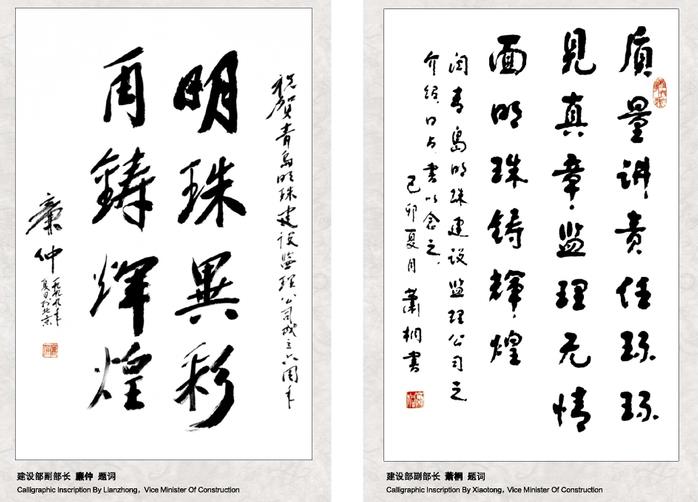 祝贺青岛明珠建设监理公司成立六周年
明珠異彩
再鑄輝煌
廉仲
一九九九年
夏日於北京
建设部副部长 廉仲 题词
Calligraphic Inscription By Lianzhong, Vice Minister Of Construction
质量讲责任琢琢
见真章监理无情
面明珠铸辉煌
闻青岛明珠建设监理公司之
介绍口占书以念之
己卯夏月 萧桐书
建设部副部长 萧桐 题词
Calligraphic Inscription By Xiaotong, Vice Minister Of Construction